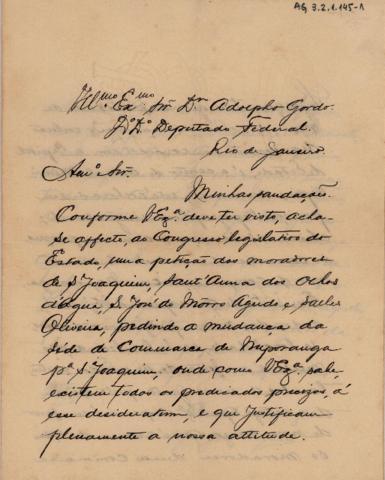 AG 3.2.1.145-1
Ill.mo Ex.mo Snr Dr Adolpho Gordo.
D.D. Deputado Federal.
Rio de Janeiro.
Amo Snr.
Minhas saudação.
Conforme V Exa. deve ter visto, acha-
se affecto, ao Congresso legislativo do
Estado, uma petição dos moradores
de S. Joaquim, Sant'Anna dos Olhos
d'agua, S. José do Môrro Agudo e Salles
Oliveira, pedindo a mudança da
Séde de Commarca de Nuporanga
pa S. Joaquim, onde como V Exa. sabe,
existem todos os predicados precizos, á
esse desideratum, e que justificam
plenamente a nossa attitude.